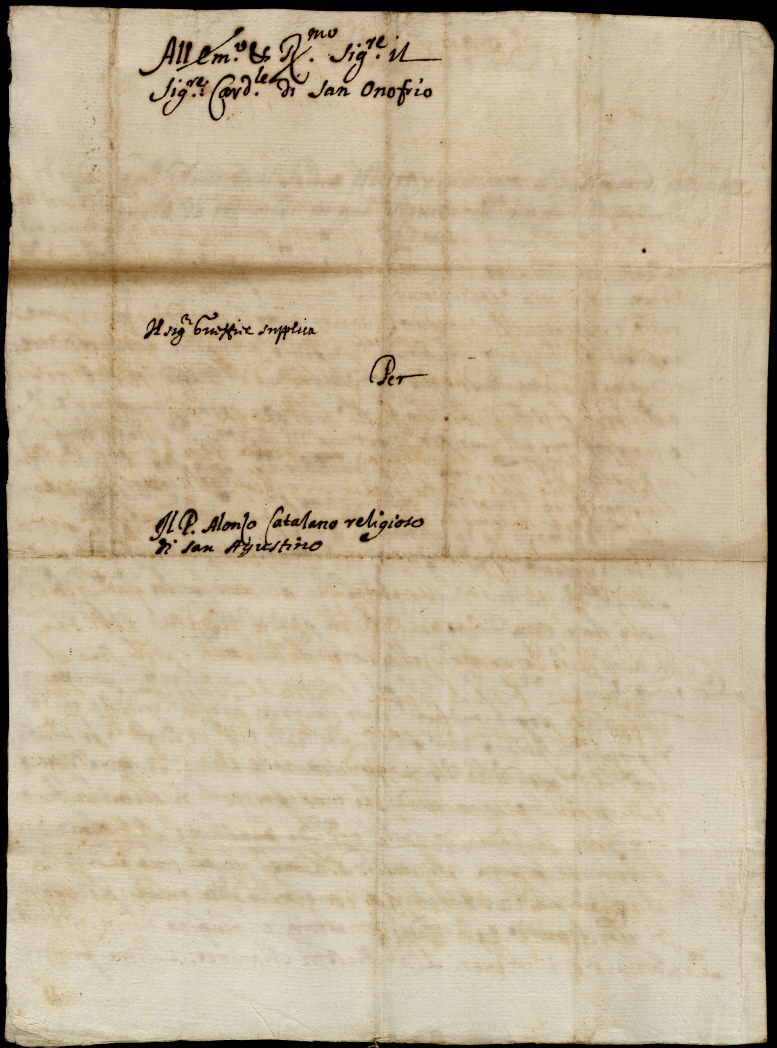 All Em.o & R.mo Sig.re il
Sig.re Card.le di San Onofrio
Il sig.r supplica
Per
Il P. Alonso Catalano religioso
di san Agustino